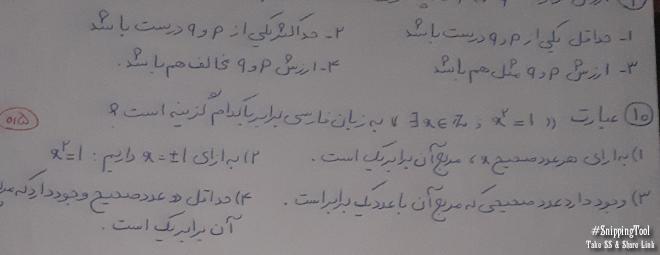 ۱- حداقل یکی از p و q درست باشد ۲- حداکثر یکی از p و q درست باشد
۳- ارزش p و q مثل هم باشد ۴- ارزش p و q مخالف هم باشد.
۱۰ عبارت «∃x∈Z ; x²=1» به زبان فارسی برابر با کدام گزینه است؟
۰/۵
۱) به ازای هر عدد صحیح x، مربع آن برابر یک است. ۲) به ازای x=±1 داریم: x²=1
۳) وجود دارد عدد صحیحی که مربع آن با عدد یک برابر است. ۴) حداقل عدد صحیح وجود دارد که
آن برابر یک است.
#SnippingTool
Take SS & Share Link